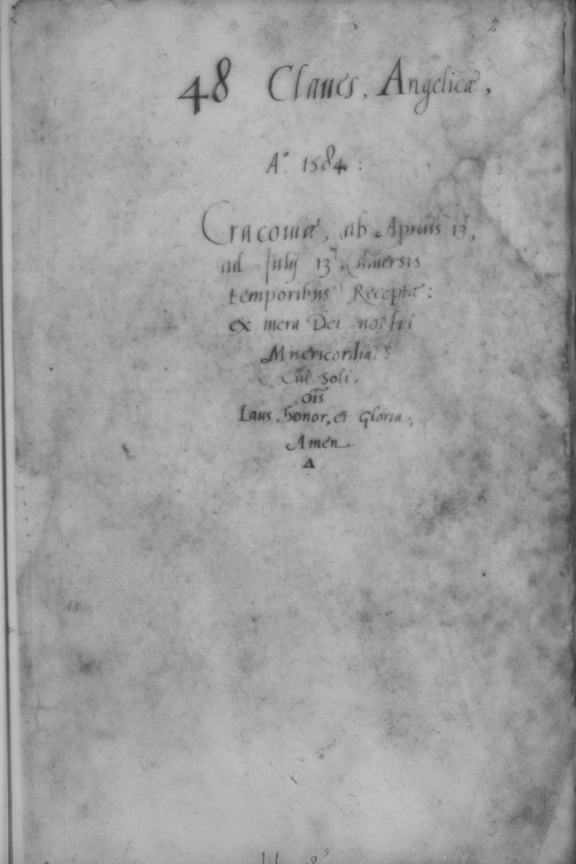 2
48 Claues, Angelicæ,
A° 1584 :
Cracouiæ, ab Aprilis 13,
ad Julij 13, diuersis
temporibus Receptæ :
ex mera Dei nostri
Misericordia :
Cui soli,
oīs
Laus, honor, et Gloria,
Amen.
Δ